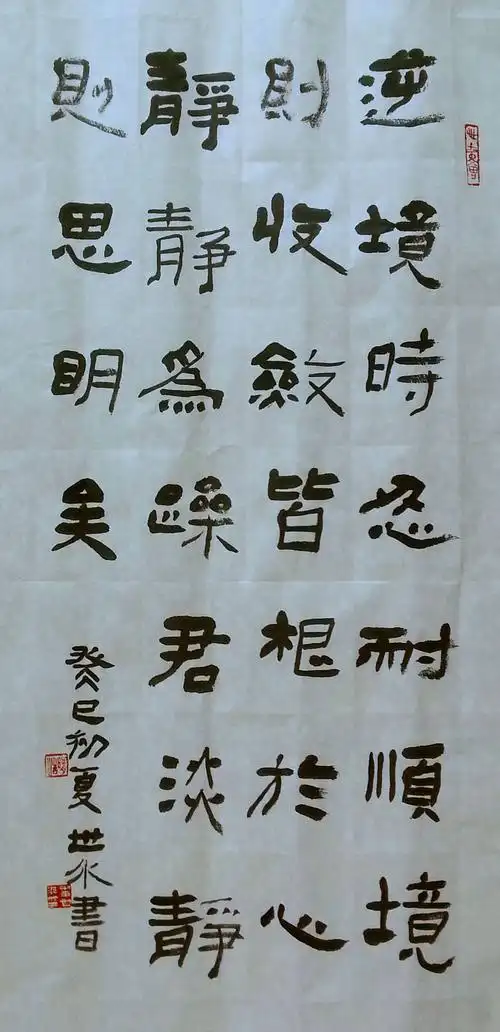 逆境時忍耐順境
則收斂皆根於心
靜靜為躁君淡靜
則思明矣
癸巳初夏世永書